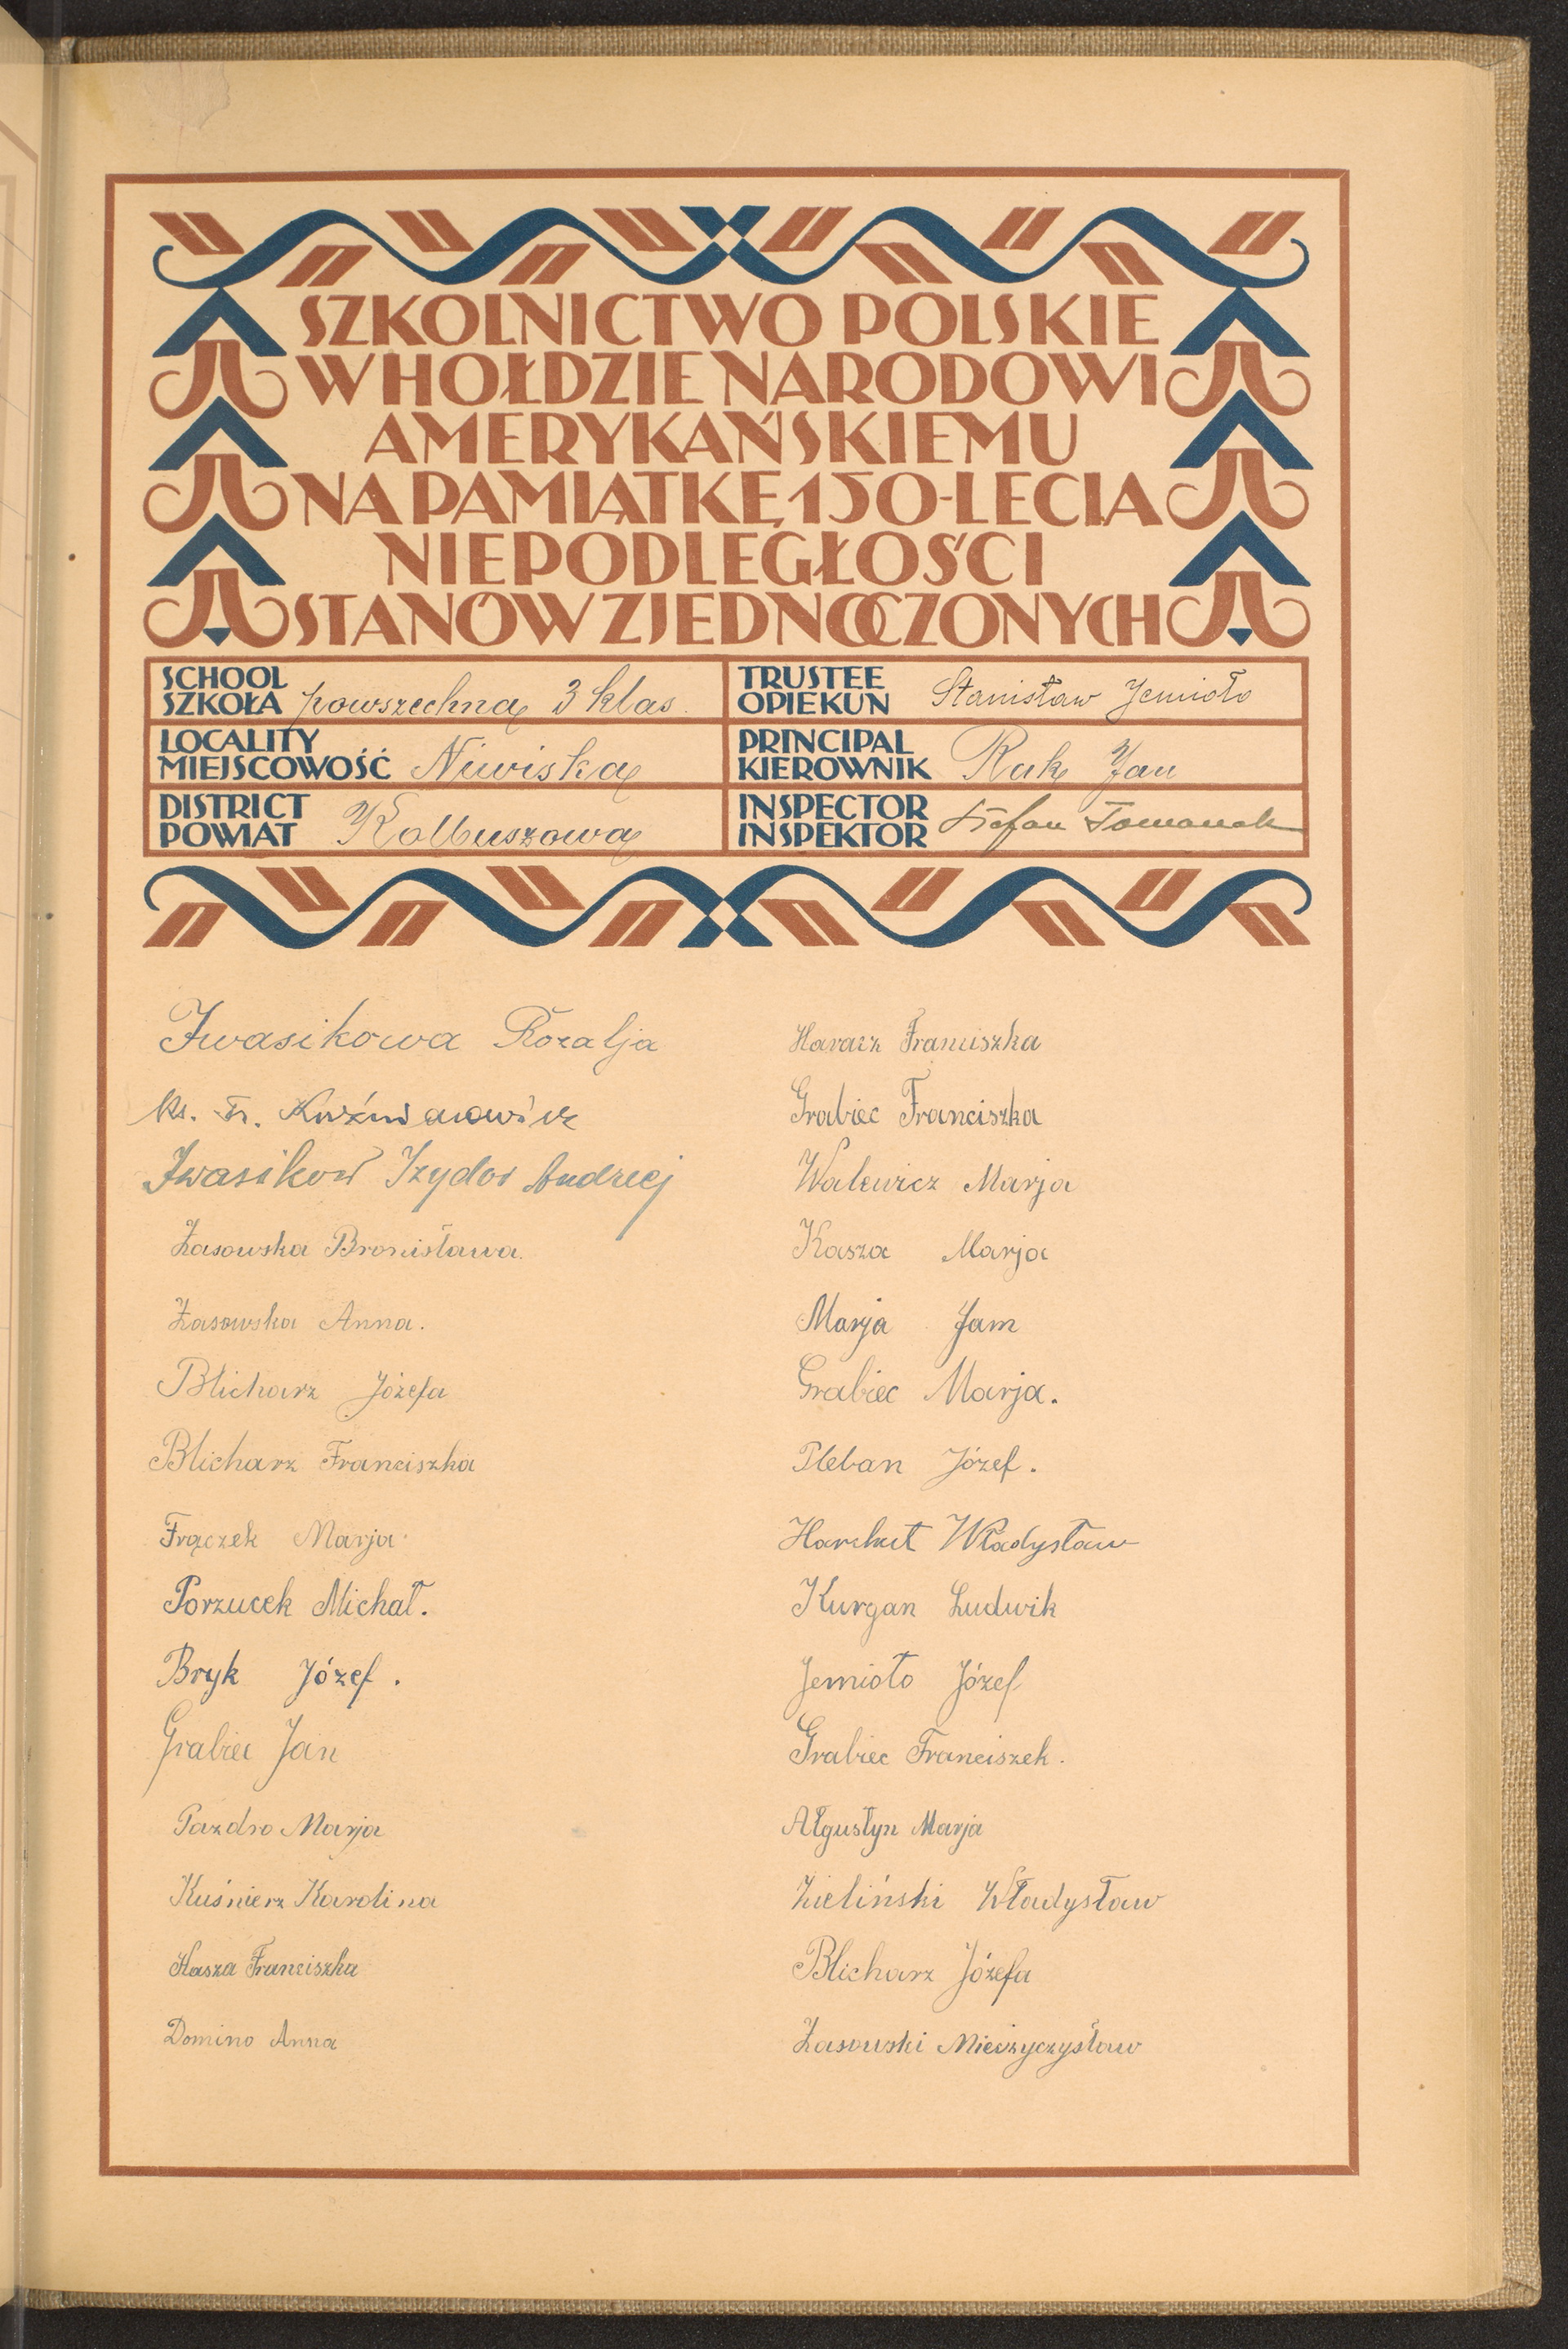 SZKOLNICTWO POLSKIE
W HOŁDZIE NARODOWI
AMERYKAŃSKIEMU
NA PAMIĄTKĘ 150-LECIA
NIEPODLEGŁOŚCI
STANÓW ZJEDNOCZONYCH
SCHOOL
SZKOŁA powszechna 3 klas.
TRUSTEE
OPIEKUN Stanisław Jemioło
LOCALITY
MIEJSCOWOŚĆ Niwiska
PRINCIPAL
KIEROWNIK Rak Jan
DISTRICT
POWIAT Kolbuszowa
INSPECTOR
INSPEKTOR Stefan Tomanek
Iwasikowa Rozalja
ks. Fr. Kuźniarowicz
Iwasikow Izydor Andrzej
Żasowska Bronisława.
Żasowska Anna.
Blicharz Józefa
Blicharz Franciszka
Frączek Marja.
Porzucek Michał.
Bryk Józef.
Grabiec Jan
Pazdro Marja
Kuśnierz Karolina
Kasza Franciszka
Domino Anna
Haracz Franciszka
Grabiec Franciszka
Walewicz Marja
Kasza Marja
Marja Jam
Grabiec Marja.
Pleban Józef.
Harchut Władysław
Kurgan Ludwik
Jemioło Józef
Grabiec Franciszek.
Ałgustyn Marja
Zieliński Władysław
Blicharz Józefa
Żasowski Mieczyczysław